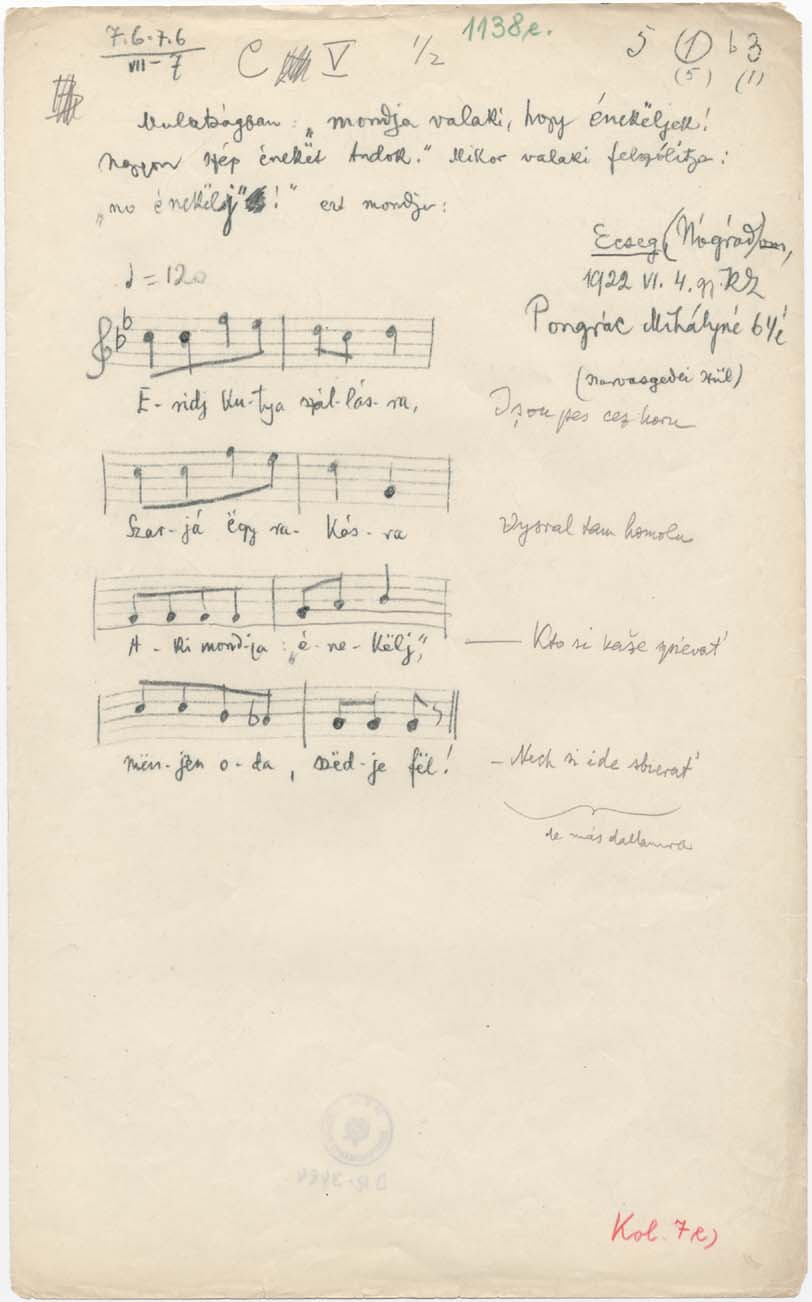 7.6.7.6
VII – 7
C V 1/2
1138e.
5 (1) b3
(5) (1)
Mulatságban: „mondja valaki, hogy énekëljek!
Nagyon szép énekët tudok." Mikor valaki felszólítja:
„no énekëlj!" ezt mondja:
Ecseg (Nógrád),
1922 VI. 4. gy KZ
Pongrác Mihályné 64 é
♩ = 120
E-ridj ku-tya szál-lás-ra,
Izou pes cez horu
Szar-já ëgy ra-kás-ra
Vysral tam homolu
A-ki mond-ja: „é-ne-këlj,"
— Kto si kaše zpievat'
mën-jën o-da, szëd-je fël!
– Nech si ide sbierat'
de más dallamra
Kol. 7e)